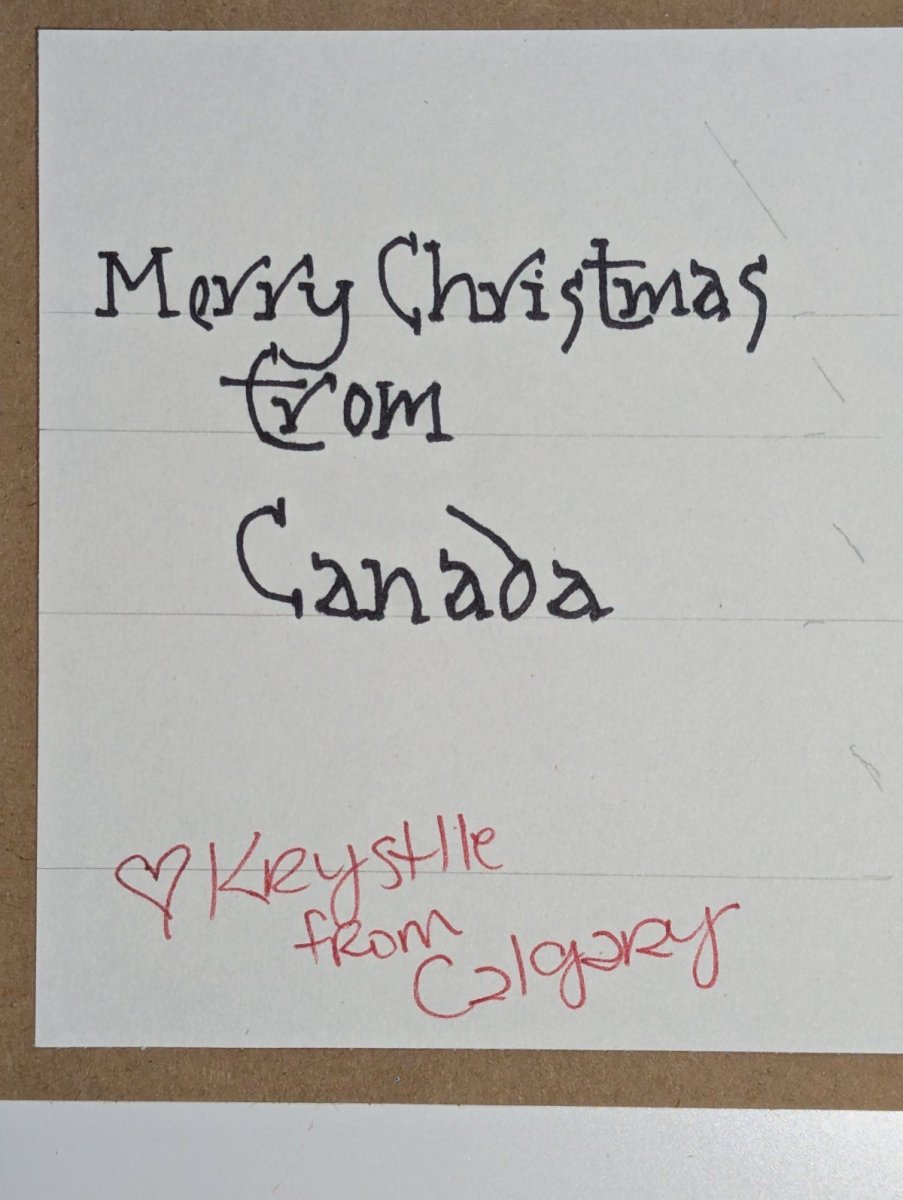 Merry Christmas
from
Canada
♡ Krystlle
from
Calgary